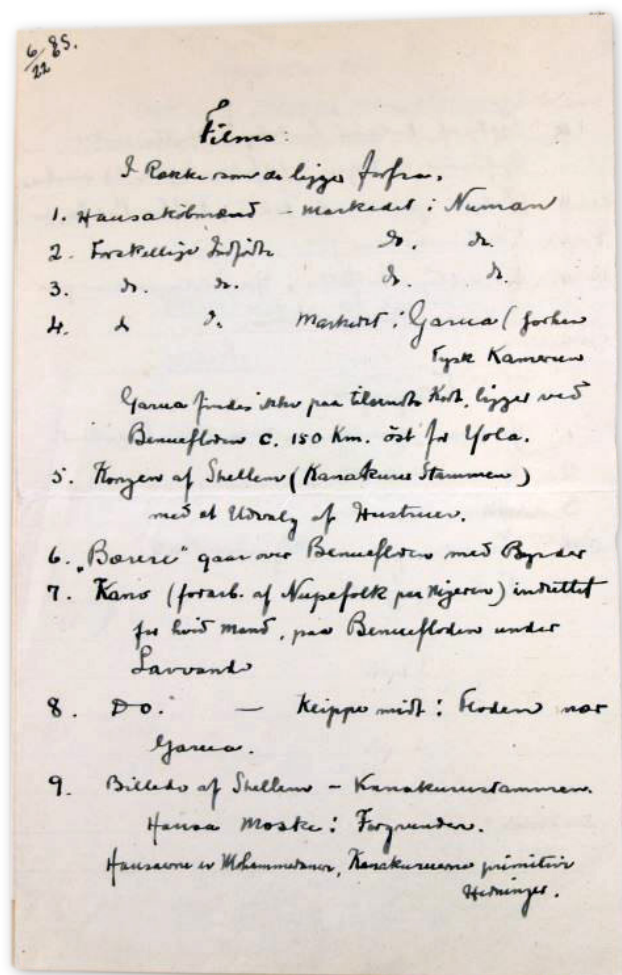 6/22 85.
Films:
I Række som de ligger forfra.
1. Hausakøbmænd - Markedet i Numan
2. Forskellige Indfødte do. do.
3. do. do. do. do.
4. do do. Markedet i Garua (forhen
Tysk Kamerun
Garua findes ikke paa tilsendte Kort, ligger ved
Benuefloden c. 150 Km. öst for Yola.
5. Kongen af Shellem (Kanakuru Stammen)
med et Udvalg af Hustruer.
6. „Bærere" gaar over Benuefloden med Byrder
7. Kano (forarb. af Nupefolk paa Nigeren) indrettet
for hvid Mand, paa Benuefloden under
Lavvande
8. Do. — Klippe midt i Floden nær
Garua.
9. Billede af Shellem - Kanakurustammen.
Hausa Moske i Forgrunden.
Hausaerne er Mohammedanere, Kanakuruerne primitive
Hedninger.